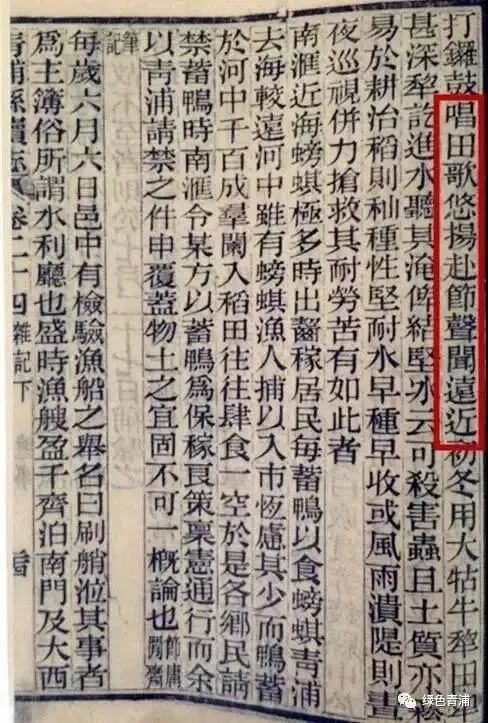 打鑼鼓唱田歌悠揚赴節聲聞遠近初冬用大牯牛犂田犂
甚深犂訖進水聽其淹俾結堅冰云可殺害蟲且土質亦
易於耕治稻則秈種性堅耐水早種早收或風雨潰隄則晝
夜巡視併力搶救其耐勞苦有如此者
南滙近海螃蜞極多時出齧稼居民每蓄鴨以食螃蜞青浦
去海較遠河中雖有螃蜞漁人捕以入市恆慮其少而鴨蓄
於河中千百成羣闌入稻田往往肆食一空於是各鄉民請
禁蓄鴨時南滙令某方以蓄鴨爲保稼良策稟憲通行而余
以青浦請禁之件申覆蓋物土之宜固不可一概論也
閒齋
筆記
每歲六月六日邑中有檢驗漁船之舉名曰刷艄涖其事者
爲主簿俗所謂水利廳也盛時漁艘盈千齊泊南門及大西
青浦縣續志 卷二十四 雜記下
绿色青浦